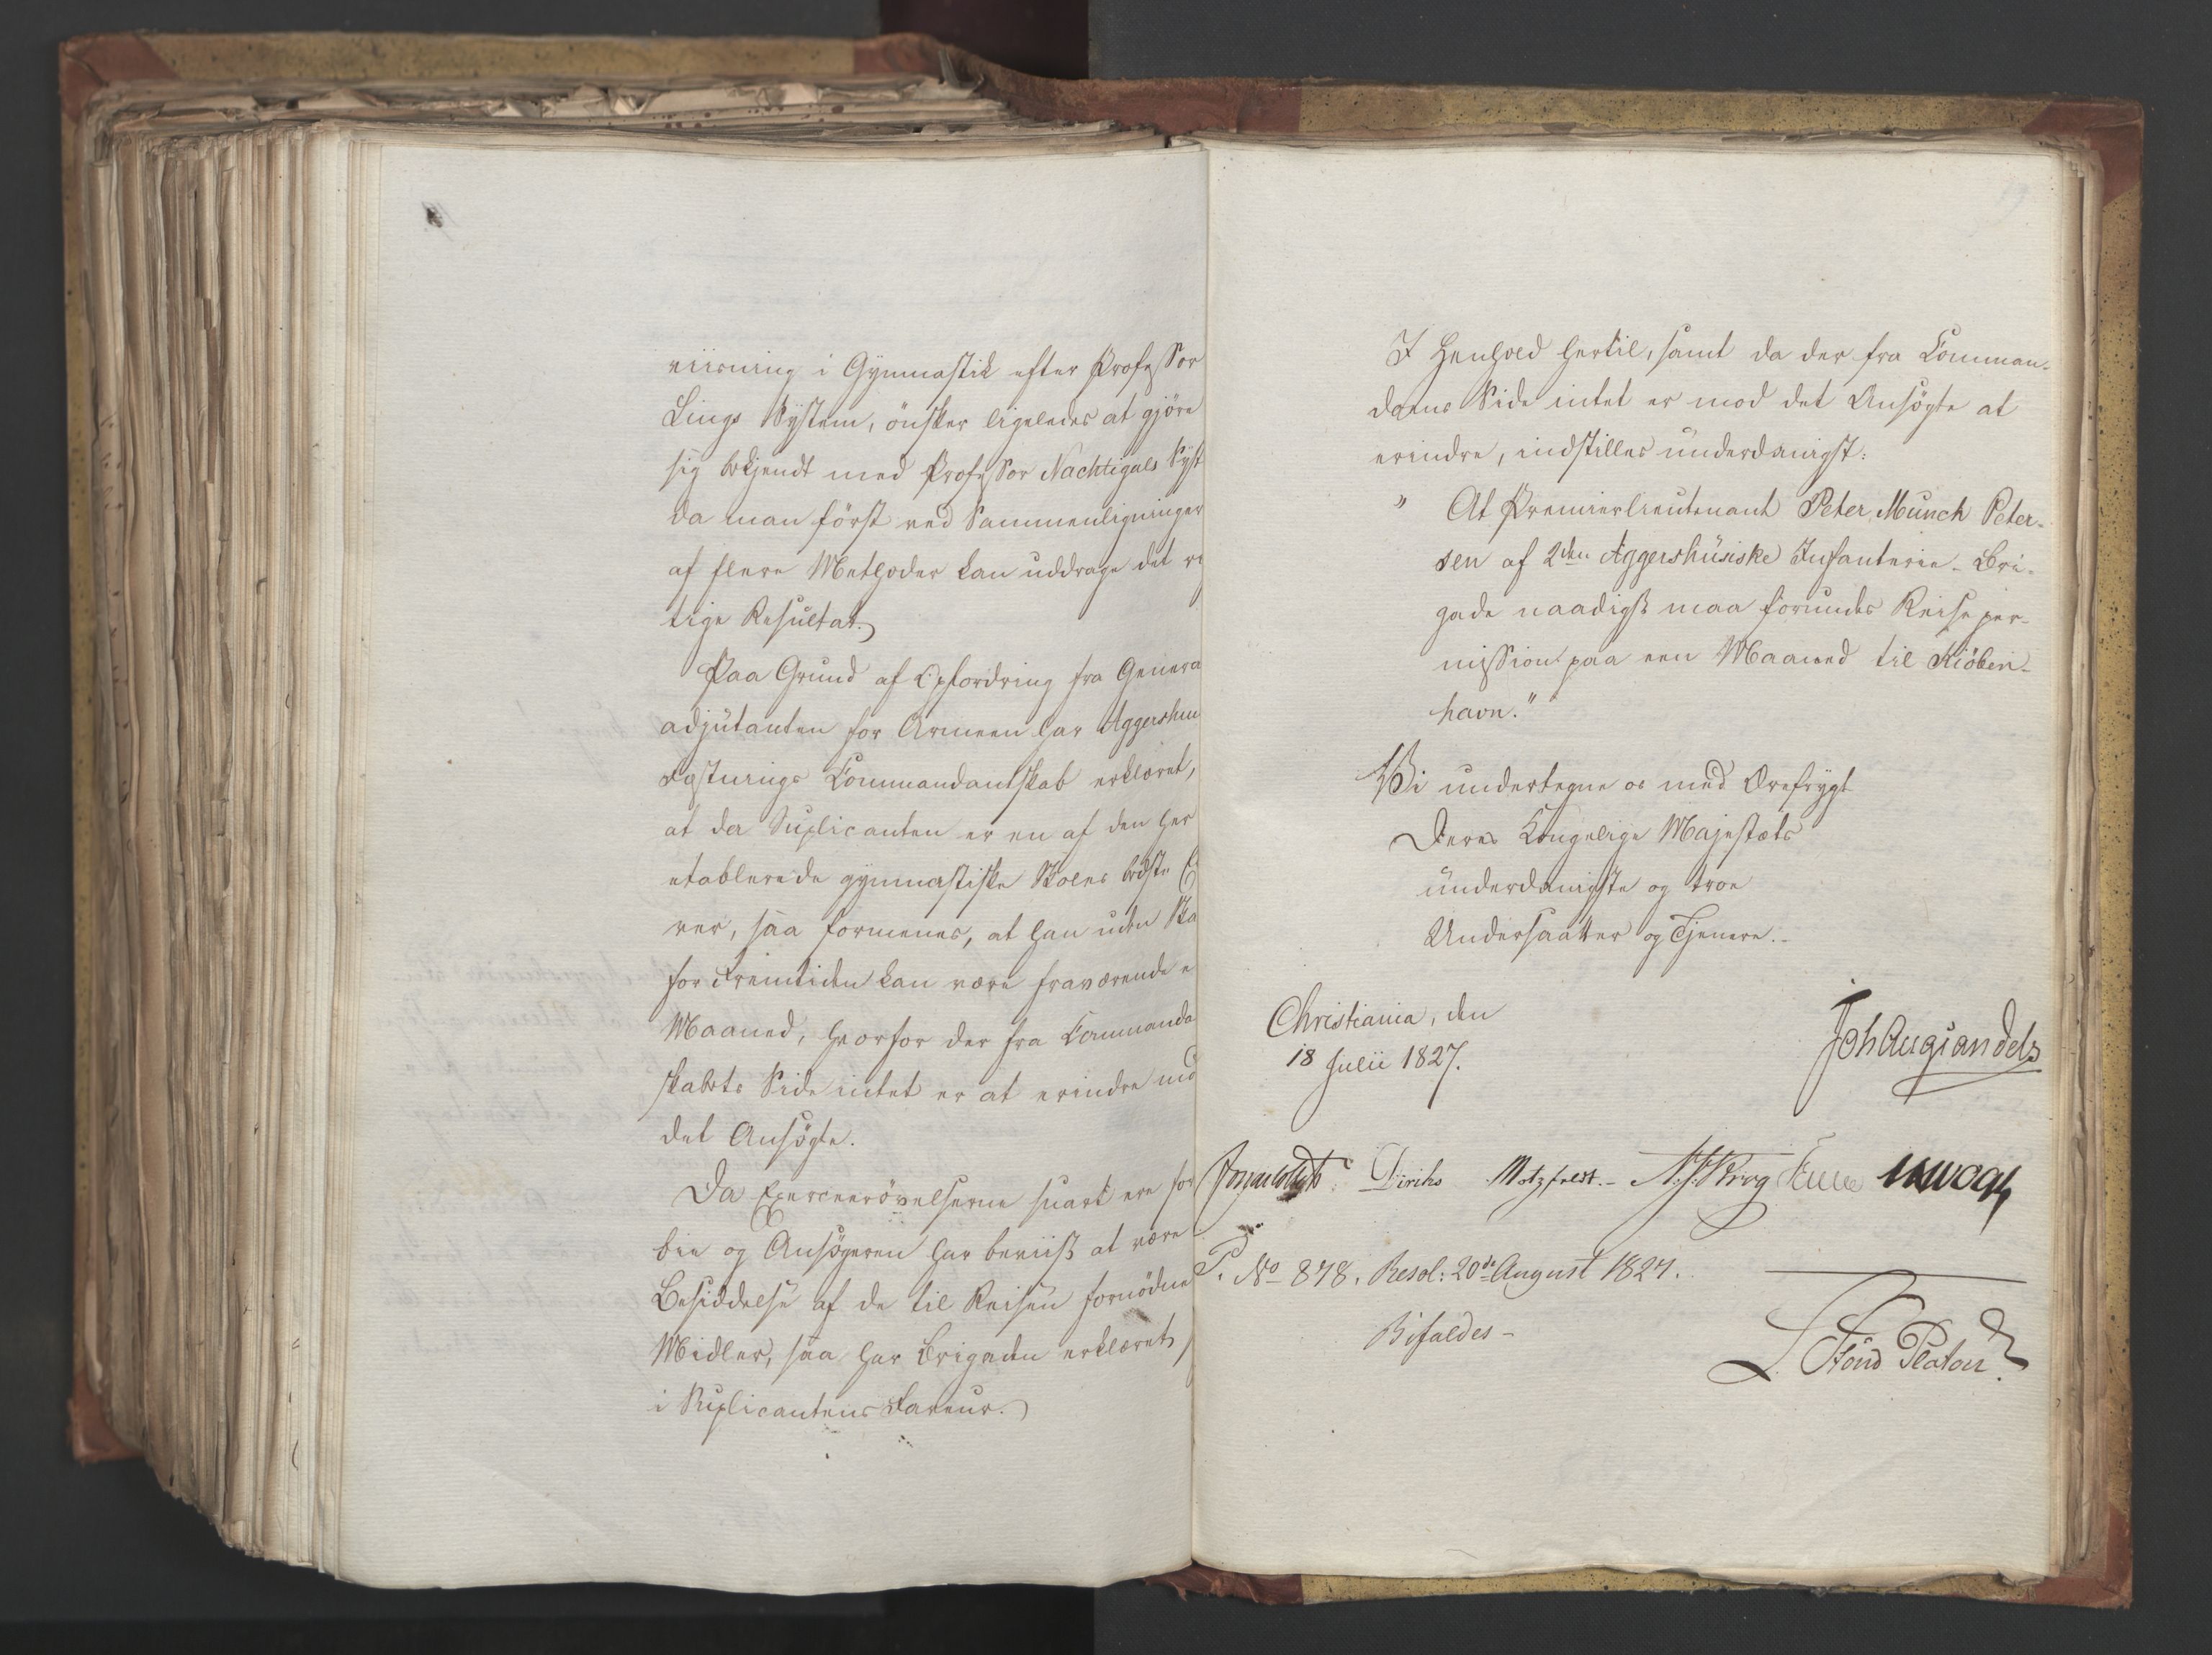 viisning i Gymnastik efter Professor
Lings System, önsker ligeledes at gjöre
sig bekjendt med Professor Nachtigals Syst
da man först ved Sammenligninger
af flere Methoder kan uddrage det ri
tige Resultat.
Paa Grund af Opfordring fra Genera
adjutanten for Armeen har Aggershuu
Fæstnings Commandantskab erklæret,
at da Suplicanten er en af den her
etablerede gymnastiske Skoles bedste E
ver, saa formenes, at han uden Ska
for Fremtiden kan være fraværende e
Maaned, hvorfor der fra Commanda
skabets Side intet er at erindre mod
det Ansögte.
Da Exerceerövelserne snart ere for
bie og Ansögeren har beviist at være
Besiddelse af de til Reisen fornödne
Midler, saa har Brigaden erklæret
i Suplicantens Faveur.
I Henhold hertil, samt da der fra Comman-
doens Side intet er mod det Ansögte at
erindre, indstilles underdanigst:
" At Premierlieutenant Peter Munch Peter-
sen af 2den Aggershusiske Infanterie-Bri-
gade naadigst maa forundes Reiseper-
mission paa een Maaned til Kiöben-
havn."
Vi undertegne os med Ærefrygt
Deres Kongelige Majestæts
underdanigste og troe
Undersaatter og Tjenere.
Christiania, den
18 Julii 1827.
Joh Aug Sandels
Diriks Motzfeldt. N. J. Krog
P. No 878. Resol: 20de August 1827.
Bifaldes -
L. Stoud Platou